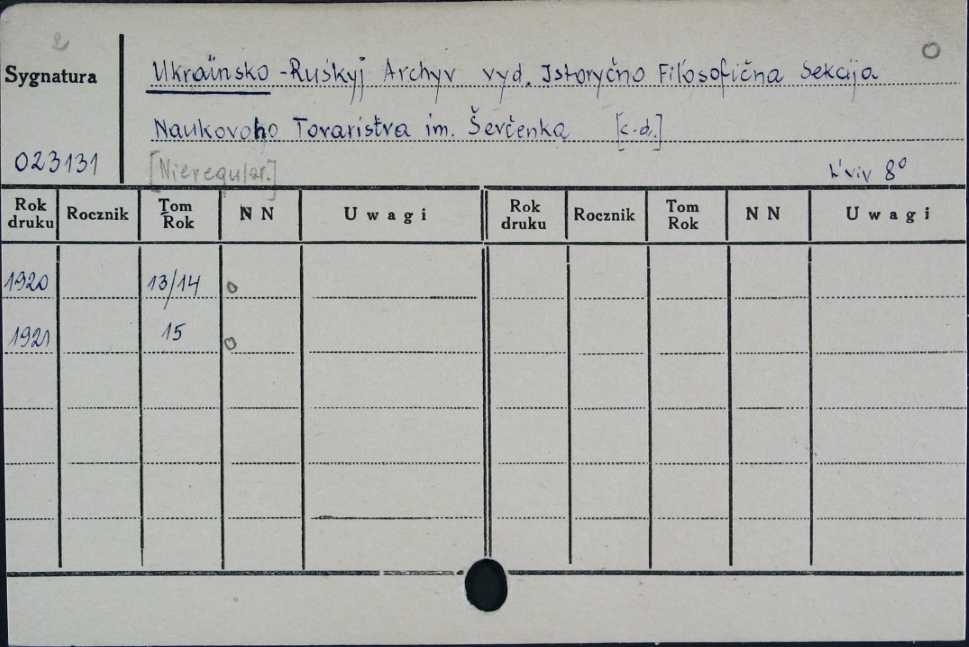 2
Sygnatura
Ukraїnsko-Ruśkyj Archyv vyd. Istoryčno Filosofična Sekcija
Naukovoho Tovaristva im. Ševčenka [c.d.]
023131
[Nieregular.]
L'viv 8°
Rok druku Rocznik Tom Rok NN Uwagi Rok druku Rocznik Tom Rok NN Uwagi
1920 13/14
1921 15